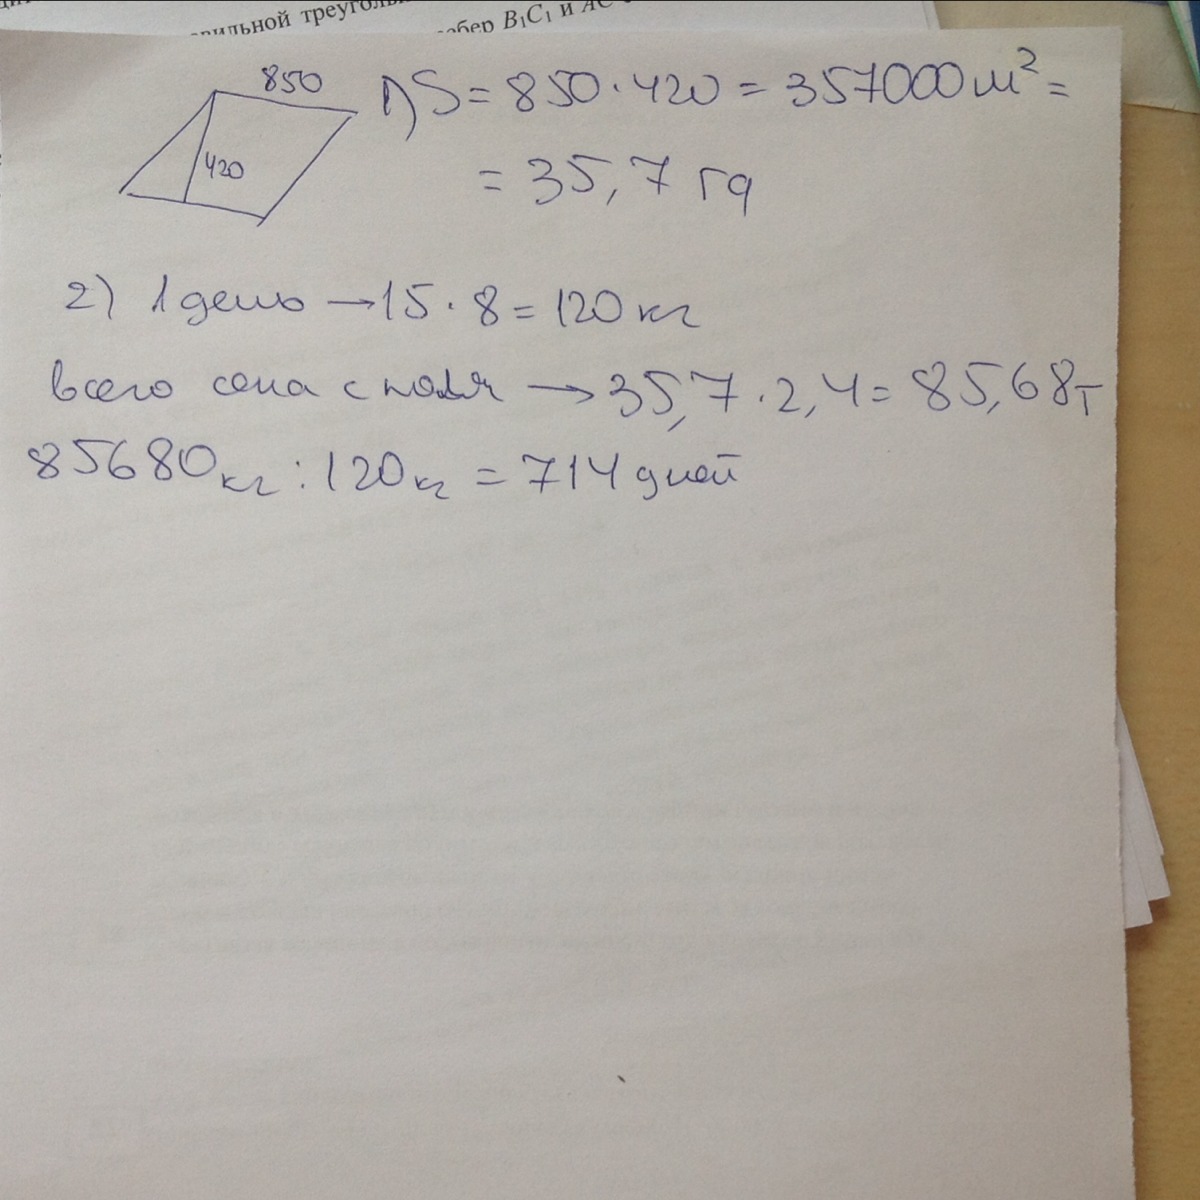 вильной треуголь
ребер B₁C₁ и AC
850
420
1) S = 850 · 420 = 357000 м² =
= 35,7 га
2) 1 день → 15 · 8 = 120 кг
всего сена с поля → 35,7 · 2,4 = 85,68 т
85680 кг : 120 кг = 714 дней